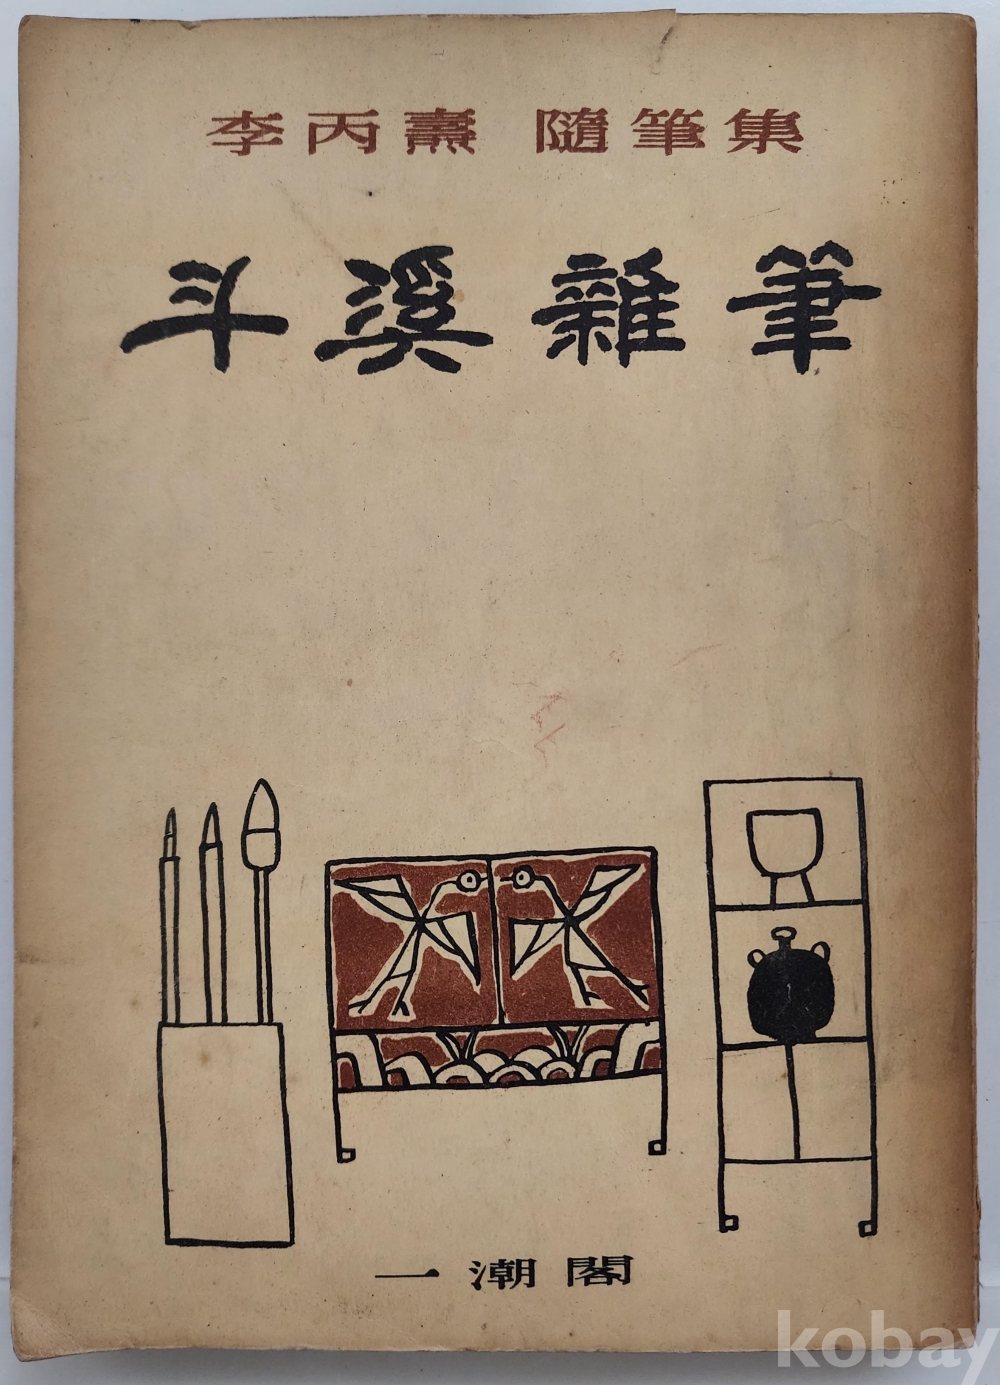 李丙燾 隨筆集
斗溪雜筆
一潮閣
kobay